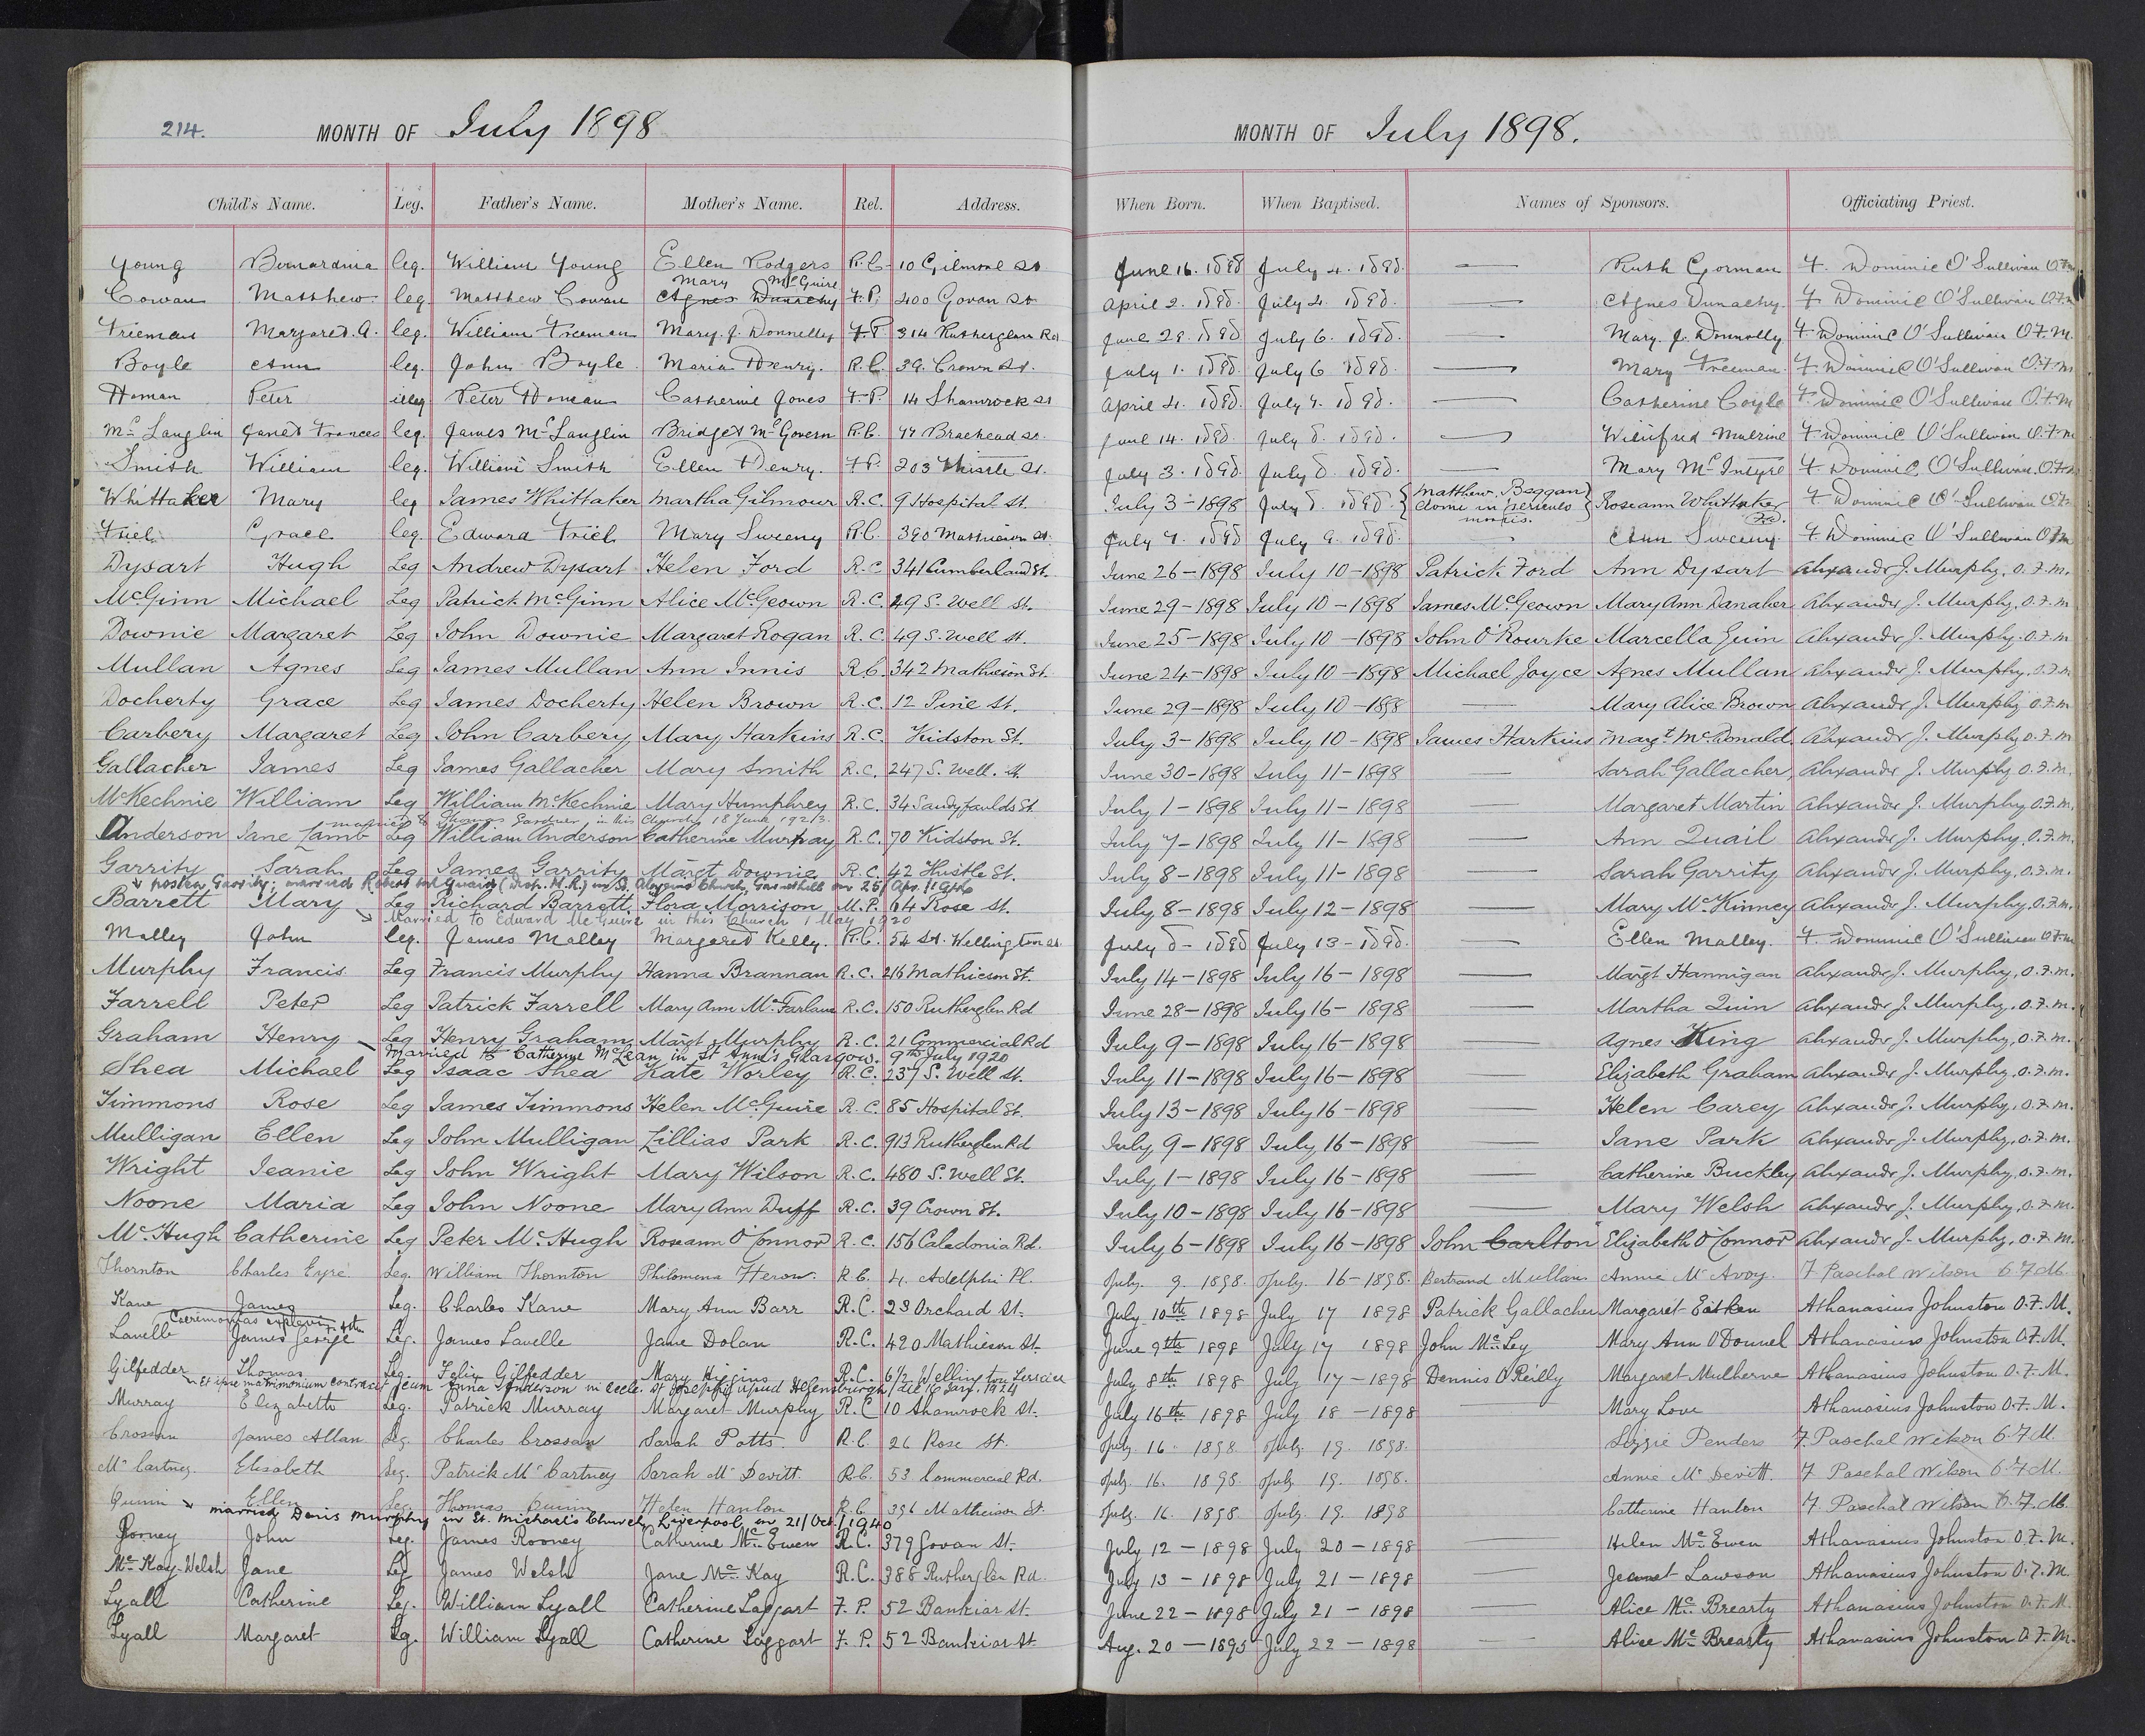 214.
MONTH OF July 1898
Child's Name. Leg. Father's Name. Mother's Name. Rel. Address.
Young Bernardina leg. William Young Ellen Rodgers R.C. 10 Gilmore St
Mary McGuire
Cowan Matthew leg. Matthew Cowan Agnes Dunachy F.P. 400 Govan St
Freeman Margaret. A. leg. William Freeman Mary. J. Donnelly F.P. 314 Rutherglen Rd
Boyle Ann leg. John Boyle Maria Henry. R.C. 39. Crown St.
Homan Peter illeg Peter Homan Catherine Jones F.P. 14 Shamrock St
McLauglin Janet Frances leg. James McLauglin Bridget McGovern R.C. 44 Braehead St.
Smith William leg. William Smith Ellen Henry. F.P. 203 Thistle St.
Whittaker Mary leg James Whittaker Martha Gilmour R.C. 9 Hospital St.
Friel Grace leg. Edward Friel Mary Sweeny R.C. 390 Mathieson St.
Dysart Hugh Leg Andrew Dysart Helen Ford R.C 341 Cumberland St.
McGinn Michael Leg Patrick McGinn Alice McGeown R.C. 49 S. Well St.
Downie Margaret Leg John Downie Margaret Rogan R.C. 49 S. Well St.
Mullan Agnes Leg James Mullan Ann Innis R.C. 342 Mathieson St.
Docherty Grace Leg James Docherty Helen Brown R.C. 12 Pine St.
Carbery Margaret Leg John Carbery Mary Harkins R.C. Kidston St.
Gallacher James Leg James Gallacher Mary Smith R.C. 247 S. Well. St.
McKechnie William Leg William McKechnie Mary Humphrey R.C. 34 Sandyfaulds St.
married to Thomas Gardner in this Church 18 June 1923.
Anderson Jane Lamb Leg William Anderson Catherine Murray R.C. 70 Kidston St.
Garrity Sarah Leg James Garrity Margt Downie R.C. 42 Thistle St.
Garrity; married Robert McQuaid (Disp. M.R.) in St. Aloysius Church, Garnethill on 25/Apr./1946
Barrett Mary Leg Richard Barrett Flora Morrison M.P. 64 Rose St.
Married to Edward McGuire in this Church 1 May 1920
Malley John leg. James Malley Margaret Kelly. R.C. 54 St. Wellington St.
Murphy Francis Leg Francis Murphy Hanna Brannan R.C. 216 Mathieson St.
Farrell Peter Leg Patrick Farrell Mary Ann McFarlane R.C. 150 Rutherglen Rd
Graham Henry Leg Henry Graham Margt Murphy R.C. 21 Commercial Rd
Married to Catherine McLean in St Anne's Glasgow. 9th July 1920
Shea Michael Leg Isaac Shea Kate Worley R.C. 237 S. Well St.
Timmons Rose Leg James Timmons Helen McGuire R.C. 85 Hospital St.
Mulligan Ellen Leg John Mulligan Lillias Park R.C. 913 Rutherglen Rd
Wright Jeanie Leg John Wright Mary Wilson R.C. 480 S. Well St.
Noone Maria Leg John Noone Mary Ann Duff R.C. 39 Crown St.
McHugh Catherine Leg Peter McHugh Roseann O'Connor R.C. 156 Caledonia Rd.
Thornton Charles Eyre Leg. William Thornton Philomena Heron. R.C. 4. Adelphi Pl.
Kane James Leg. Charles Kane Mary Ann Barr R.C. 23 Orchard St.
Caeremonias explevi
Lavelle James George Leg. James Lavelle Jane Dolan R.C. 420 Mathieson St.
Gilfedder Thomas Leg. Felix Gilfedder Mary Higgins R.C. 6½ Wellington Terrace
Et ipse matrimonium contraxit cum Anna Anderson in eccle. St Josephi apud Helensburgh, die 16 Jan. 1924
Murray Elizabeth Leg. Patrick Murray Margaret Murphy R.C 10 Shamrock St.
Crossan James Allan Leg. Charles Crossan Sarah Potts. R.C. 26 Rose St.
McCartney. Elisabeth Leg. Patrick McCartney Sarah McDevitt. R.C. 53 Commercial Rd.
Quinn Ellen Leg. Thomas Quinn Helen Hanlon R.C. 396 Mathieson St.
married Denis Murphy in St. Michael's Church, Liverpool, on 21/Oct./1940
Rooney John Leg. James Rooney Catherine McEwen R.C. 379 Govan St.
McKay-Welsh Jane Leg James Welsh Jane McKay R.C. 388 Rutherglen Rd.
Lyall Catherine Leg. William Lyall Catherine Taggart F.P. 52 Bankier St.
Lyall Margaret Leg. William Lyall Catherine Taggart F.P. 52 Bankier St.
MONTH OF July 1898.
When Born. When Baptised. Names of Sponsors. Officiating Priest.
June 16. 1898 July 4. 1898. — Ruth Gorman F. Dominic O'Sullivan O.F.M
April 2. 1898. July 4. 1898. — Agnes Dunachy. F. Dominic O'Sullivan O.F.M
June 29. 1898 July 6. 1898. — Mary. J. Donnolly F. Dominic O'Sullivan O.F.M.
July 1. 1898. July 6 1898. — Mary Freeman. F. Dominic O'Sullivan O.F.M
April 4. 1898. July 7. 1898. — Catherine Coyle F. Dominic O'Sullivan O.F.M
June 14. 1898. July 8. 1898. — Winifred Mulrine F. Dominic O'Sullivan O.F.M
July 3. 1898. July 8. 1898. — Mary McIntyre F. Dominic O'Sullivan. O.F.M
July 3 - 1898 July 8. 1898. {Matthew. Beggan} Roseann Whittaker F. Dominic O'Sullivan O.F.M
domi in periculo
mortis.
July 7. 1898 July 9. 1898. — Ann Sweeny. F. Dominic O'Sullivan O.F.M
June 26 - 1898 July 10 - 1898 Patrick Ford Ann Dysart Alexander J. Murphy, O.F.M.
June 29 - 1898 July 10 - 1898 James McGeown Mary Ann Danaher Alexander J. Murphy, O.F.M
June 25 - 1898 July 10 - 1898 John O'Rourke Marcella Quin Alexander J. Murphy. O.F.M
June 24 - 1898 July 10 - 1898 Michael Joyce Agnes Mullan Alexander J. Murphy, O.F.M
June 29 - 1898 July 10 - 1898 — Mary Alice Brown Alexander J. Murphy O.F.M
July 3 - 1898 July 10 - 1898 James Harkins Margt McDonald Alexander J. Murphy O.F.M
June 30 - 1898 July 11 - 1898 — Sarah Gallacher Alexander J. Murphy O.F.M.
July 1 - 1898 July 11 - 1898 — Margaret Martin Alexander J. Murphy O.F.M.
July 7 - 1898 July 11 - 1898 — Ann Quail Alexander J. Murphy, O.F.M.
July 8 - 1898 July 11 - 1898 — Sarah Garrity Alexander J. Murphy, O.F.M.
July 8 - 1898 July 12 - 1898 — Mary McKinney Alexander J. Murphy, O.F.M.
July 8 - 1898 July 13 - 1898. — Ellen Malley. F. Dominic O'Sullivan O.F.M
July 14 - 1898 July 16 - 1898 — Margt Hannigan Alexander J. Murphy, O.F.M.
June 28 - 1898 July 16 - 1898 — Martha Quin Alexander J. Murphy, O.F.M.
July 9 - 1898 July 16 - 1898 — Agnes King Alexander J. Murphy, O.F.M.
July 11 - 1898 July 16 - 1898 — Elizabeth Graham Alexander J. Murphy, O.F.M.
July 13 - 1898 July 16 - 1898 — Helen Carey Alexander J. Murphy, O.F.M.
July 9 - 1898 July 16 - 1898 — Jane Park Alexander J. Murphy, O.F.M.
July 1 - 1898 July 16 - 1898 — Catherine Buckley Alexander J. Murphy, O.F.M.
July 10 - 1898 July 16 - 1898 — Mary Welsh Alexander J. Murphy, O.F.M.
July 6 - 1898 July 16 - 1898 John Carlton Elizabeth O'Connor Alexander J. Murphy, O.F.M.
July. 9. 1898. July. 16 - 1898. Bertrand Mullan Annie McAvoy. F. Paschal Wilson O.F.M.
July 10th 1898 July 17 1898 Patrick Gallacher Margaret Eitken Athanasius Johnston O.F.M.
June 9th 1898 July 17 1898 John McLey Mary Ann O'Donnel Athanasius Johnston O.F.M.
July 8th 1898 July 17 - 1898 Dennis O'Reilly Margaret Mulherne Athanasius Johnston O.F.M.
July 16th 1898 July 18 - 1898 — Mary Love Athanasius Johnston O.F.M.
July. 16. 1898. July. 19. 1898. Lizzie Penders F. Paschal Wilson O.F.M.
July. 16. 1898 July. 19. 1898. Annie McDevitt. F. Paschal Wilson O.F.M.
July. 16. 1898. July. 19. 1898 Catherine Hanlon F. Paschal Wilson O.F.M.
July 12 - 1898 July 20 - 1898 — Helen McEwen Athanasius Johnston O.F.M.
July 13 - 1898 July 21 - 1898 — Jeanet Lawson Athanasius Johnston O.F.M
June 22 - 1898 July 21 - 1898 — Alice McBrearty Athanasius Johnston O.F.M.
Aug. 20 - 1895 July 22 - 1898 — Alice McBrearty Athanasius Johnston O.F.M.